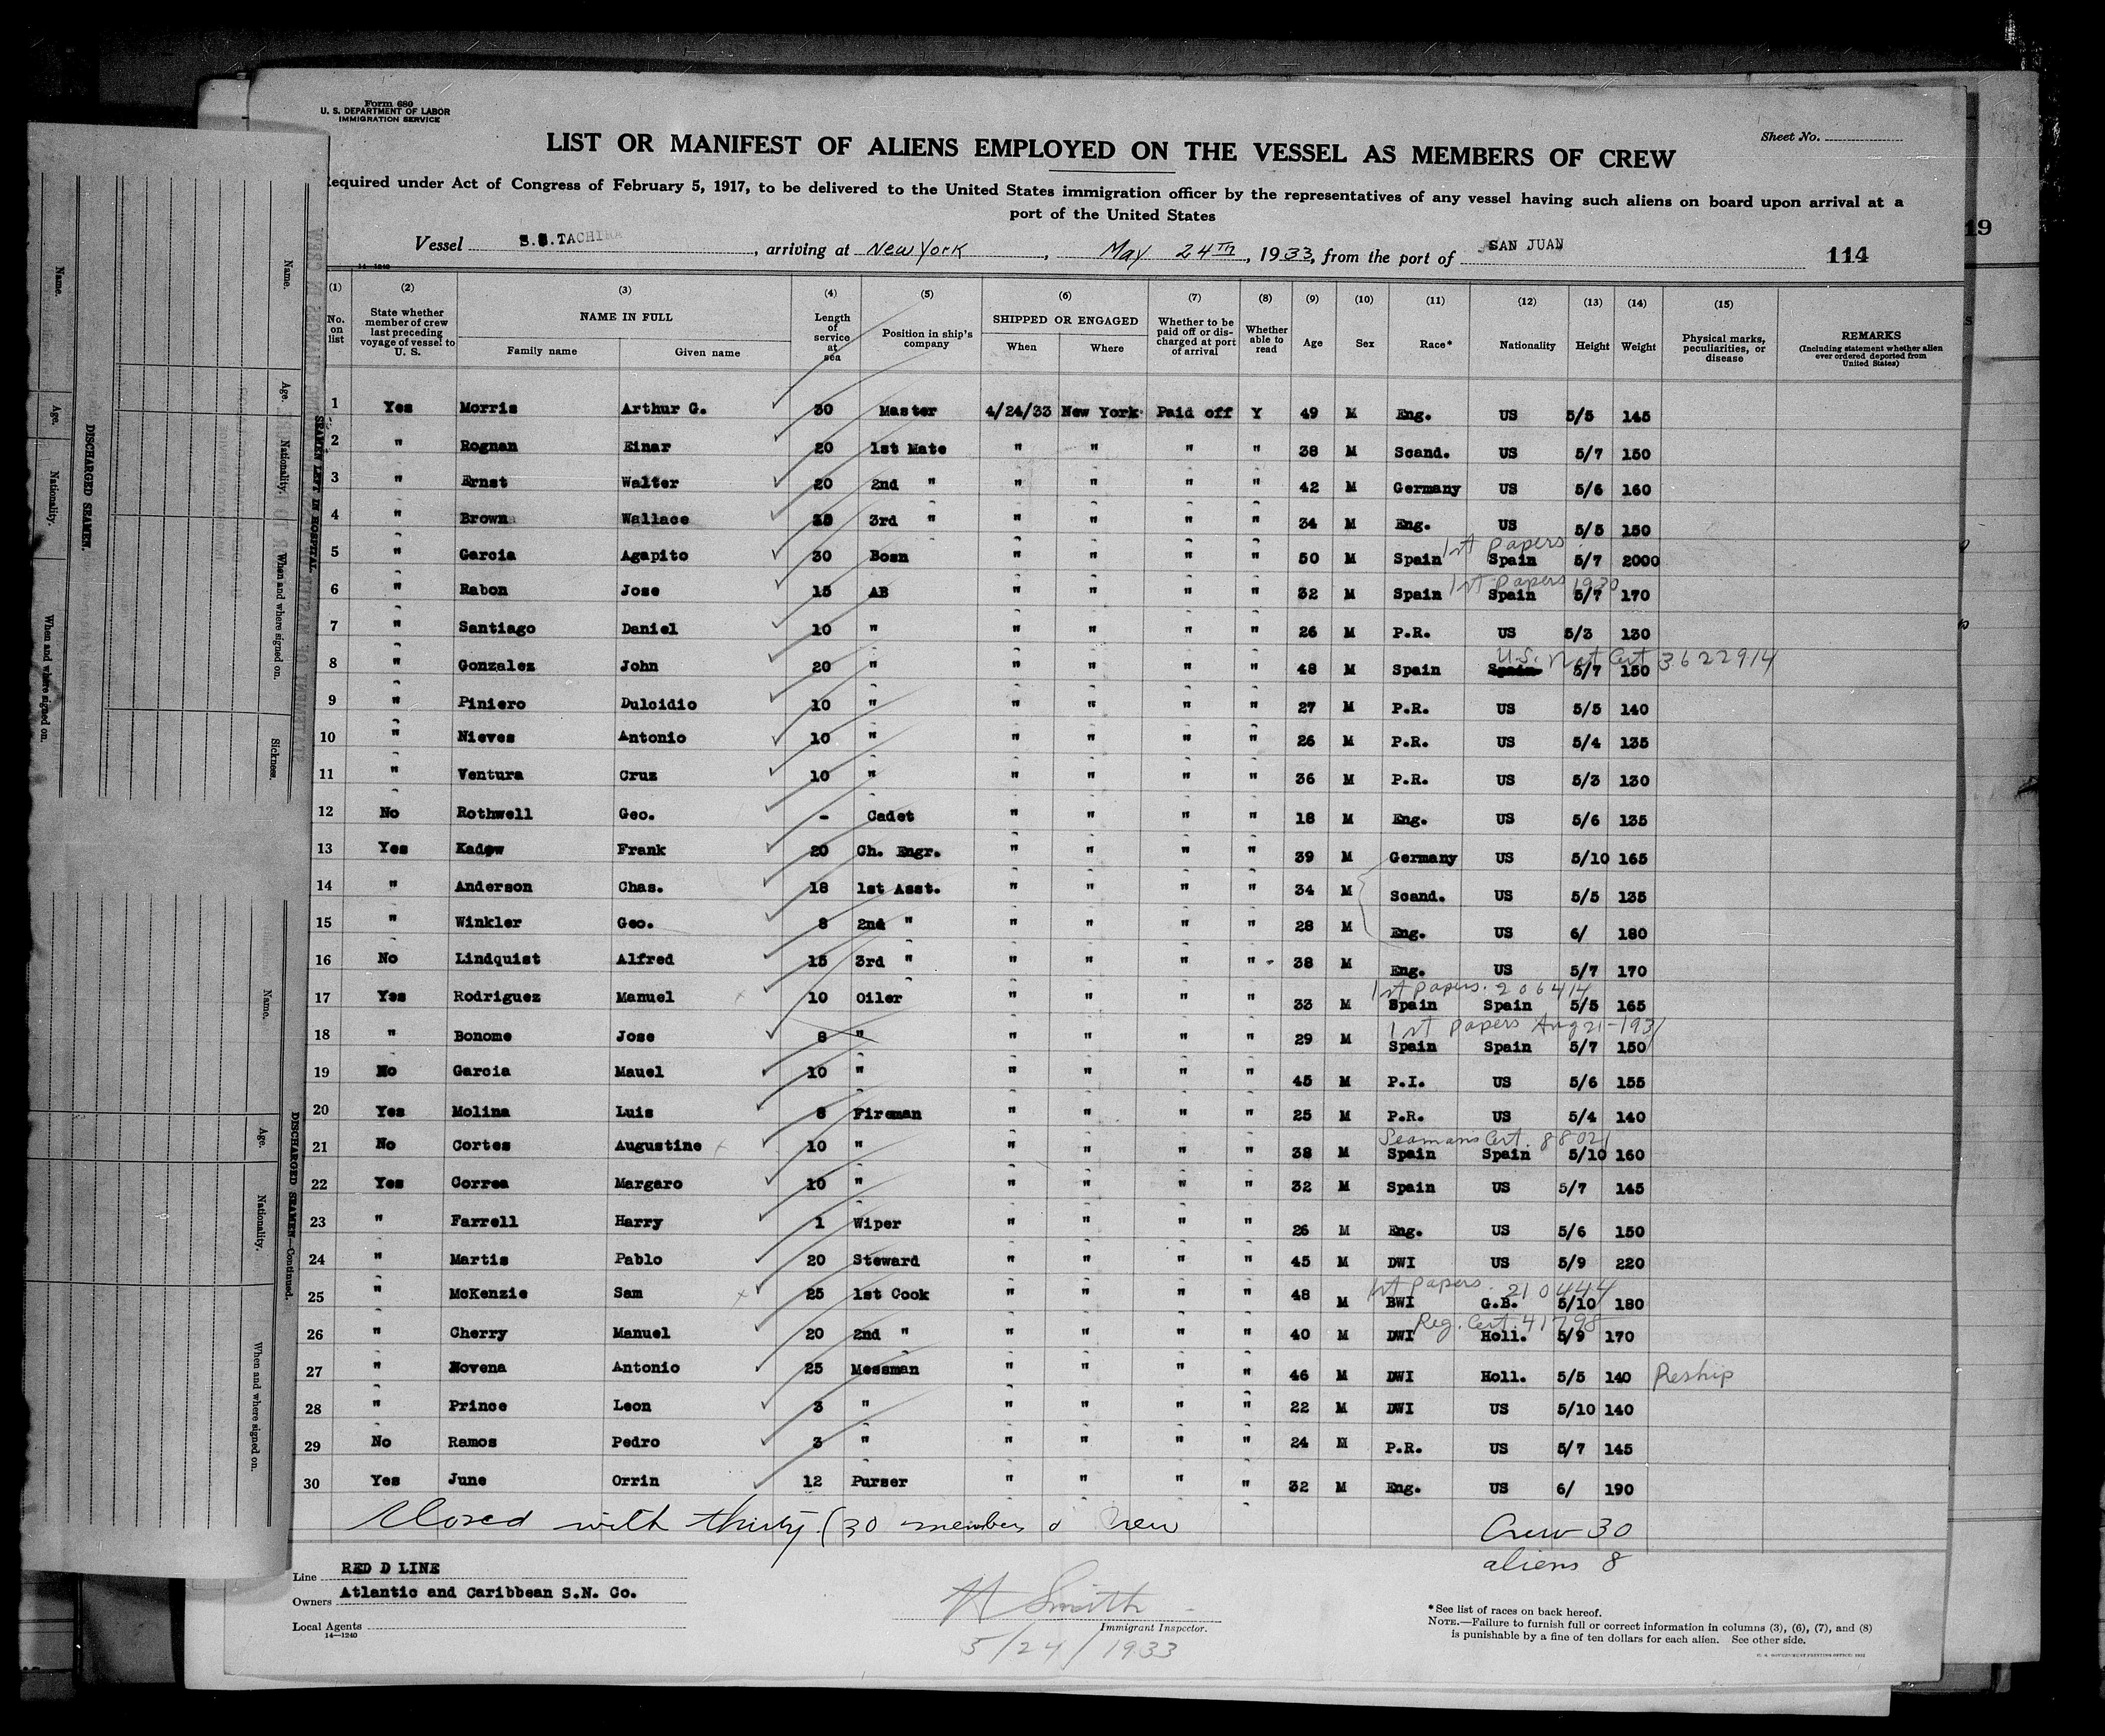 Form 680
U. S. DEPARTMENT OF LABOR
IMMIGRATION SERVICE
Sheet No.
LIST OR MANIFEST OF ALIENS EMPLOYED ON THE VESSEL AS MEMBERS OF CREW
equired under Act of Congress of February 5, 1917, to be delivered to the United States immigration officer by the representatives of any vessel having such aliens on board upon arrival at a
port of the United States
Vessel S.S.TACHIRA, arriving at New York, May 24TH, 1933, from the port of SAN JUAN 114
14—1240
(1) (2) (3) (4) (5) (6) (7) (8) (9) (10) (11) (12) (13) (14) (15)
No. on list State whether member of crew last preceding voyage of vessel to U. S. NAME IN FULL Family name Given name Length of service at sea Position in ship's company SHIPPED OR ENGAGED When Where Whether to be paid off or discharged at port of arrival Whether able to read Age Sex Race* Nationality Height Weight Physical marks, peculiarities, or disease REMARKS (Including statement whether alien ever ordered deported from United States)
1 Yes Morris Arthur G. 30 Master 4/24/33 New York Paid off Y 49 M Eng. US 5/5 145
2 " Rognan Einar 20 1st Mate " " " " 38 M Scand. US 5/7 150
3 " Ernst Walter 20 2nd " " " " " 42 M Germany US 5/6 160
4 " Brown Wallace 3rd " " " " " 34 M Eng. US 5/5 150
1st papers
5 " Garcia Agapito 30 Bosn " " " " 50 M Spain Spain 5/7 2000
1st papers 1930
6 " Rabon Jose 15 AB " " " " 32 M Spain Spain 5/7 170
7 " Santiago Daniel 10 " " " " " 26 M P.R. US 5/3 130
U.S. Nat Cert 3622914
8 " Gonzalez John 20 " " " " " 48 M Spain Spain 5/7 150
9 " Piniero Dulcidio 10 " " " " " 27 M P.R. US 5/5 140
10 " Nieves Antonio 10 " " " " " 26 M P.R. US 5/4 135
11 " Ventura Cruz 10 " " " " " 36 M P.R. US 5/3 130
12 No Rothwell Geo. - Cadet " " " " 18 M Eng. US 5/6 135
13 Yes Kadow Frank 20 Ch. Engr. " " " " 39 M Germany US 5/10 165
14 " Anderson Chas. 18 1st Asst. " " " " 34 M Scand. US 5/5 135
15 " Winkler Geo. 8 2nd " " " " " 28 M Eng. US 6/ 180
16 No Lindquist Alfred 15 3rd " " " " " 38 M Eng. US 5/7 170
1st papers. 206414
17 Yes Rodriguez Manuel 10 Oiler " " " " 33 M Spain Spain 5/5 165
1st papers Aug 21-1931
18 " Bonome Jose 8 " " " " " 29 M Spain Spain 5/7 150
19 No Garcia Mauel 10 " " " " " 45 M P.I. US 5/6 155
20 Yes Molina Luis 8 Fireman " " " " 25 M P.R. US 5/4 140
Seamans Cert. 88021
21 No Cortes Augustine 10 " " " " " 38 M Spain Spain 5/10 160
22 Yes Correa Margaro 10 " " " " " 32 M Spain US 5/7 145
23 " Farrell Harry 1 Wiper " " " " 26 M Eng. US 5/6 150
24 " Martis Pablo 20 Steward " " " " 45 M DWI US 5/9 220
1st papers. 210444
25 " McKenzie Sam 25 1st Cook " " " " 48 M BWI G.B. 5/10 180
Reg. Cert. 41798
26 " Cherry Manuel 20 2nd " " " " " 40 M DWI Holl. 5/9 170
27 " Novena Antonio 25 Messman " " " " 46 M DWI Holl. 5/5 140 Reship
28 " Prince Leon 3 " " " " " 22 M DWI US 5/10 140
29 No Ramos Pedro 3 " " " " " 24 M P.R. US 5/7 145
30 Yes June Orrin 12 Purser " " " " 32 M Eng. US 6/ 190
Closed with thirty (30 members o crew
Crew 30
aliens 8
Line RED D LINE
Owners Atlantic and Caribbean S.N. Co.
Local Agents
14—1240
H Smith
Immigrant Inspector.
5/24/1933
*See list of races on back hereof.
NOTE.—Failure to furnish full or correct information in columns (3), (6), (7), and (8)
is punishable by a fine of ten dollars for each alien. See other side.
U. S. GOVERNMENT PRINTING OFFICE: 1932
Name.
Age.
Nationality.
When and where signed on.
DISCHARGED SEAMEN.
Name.
Age.
Nationality.
When and where signed on.
Sickness.
SEAMEN LEFT IN HOSPITAL
Name.
Age.
Nationality.
When and where signed on.
DISCHARGED SEAMEN—Continued.
19